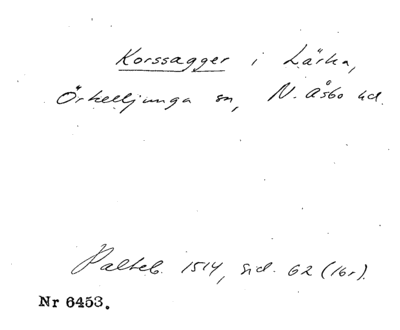 Korssagger i Lärka,
Örkelljunga sn, N. Åsbo hd.
Palteb. 1514, sid. 62 (16r).
Nr 6453.